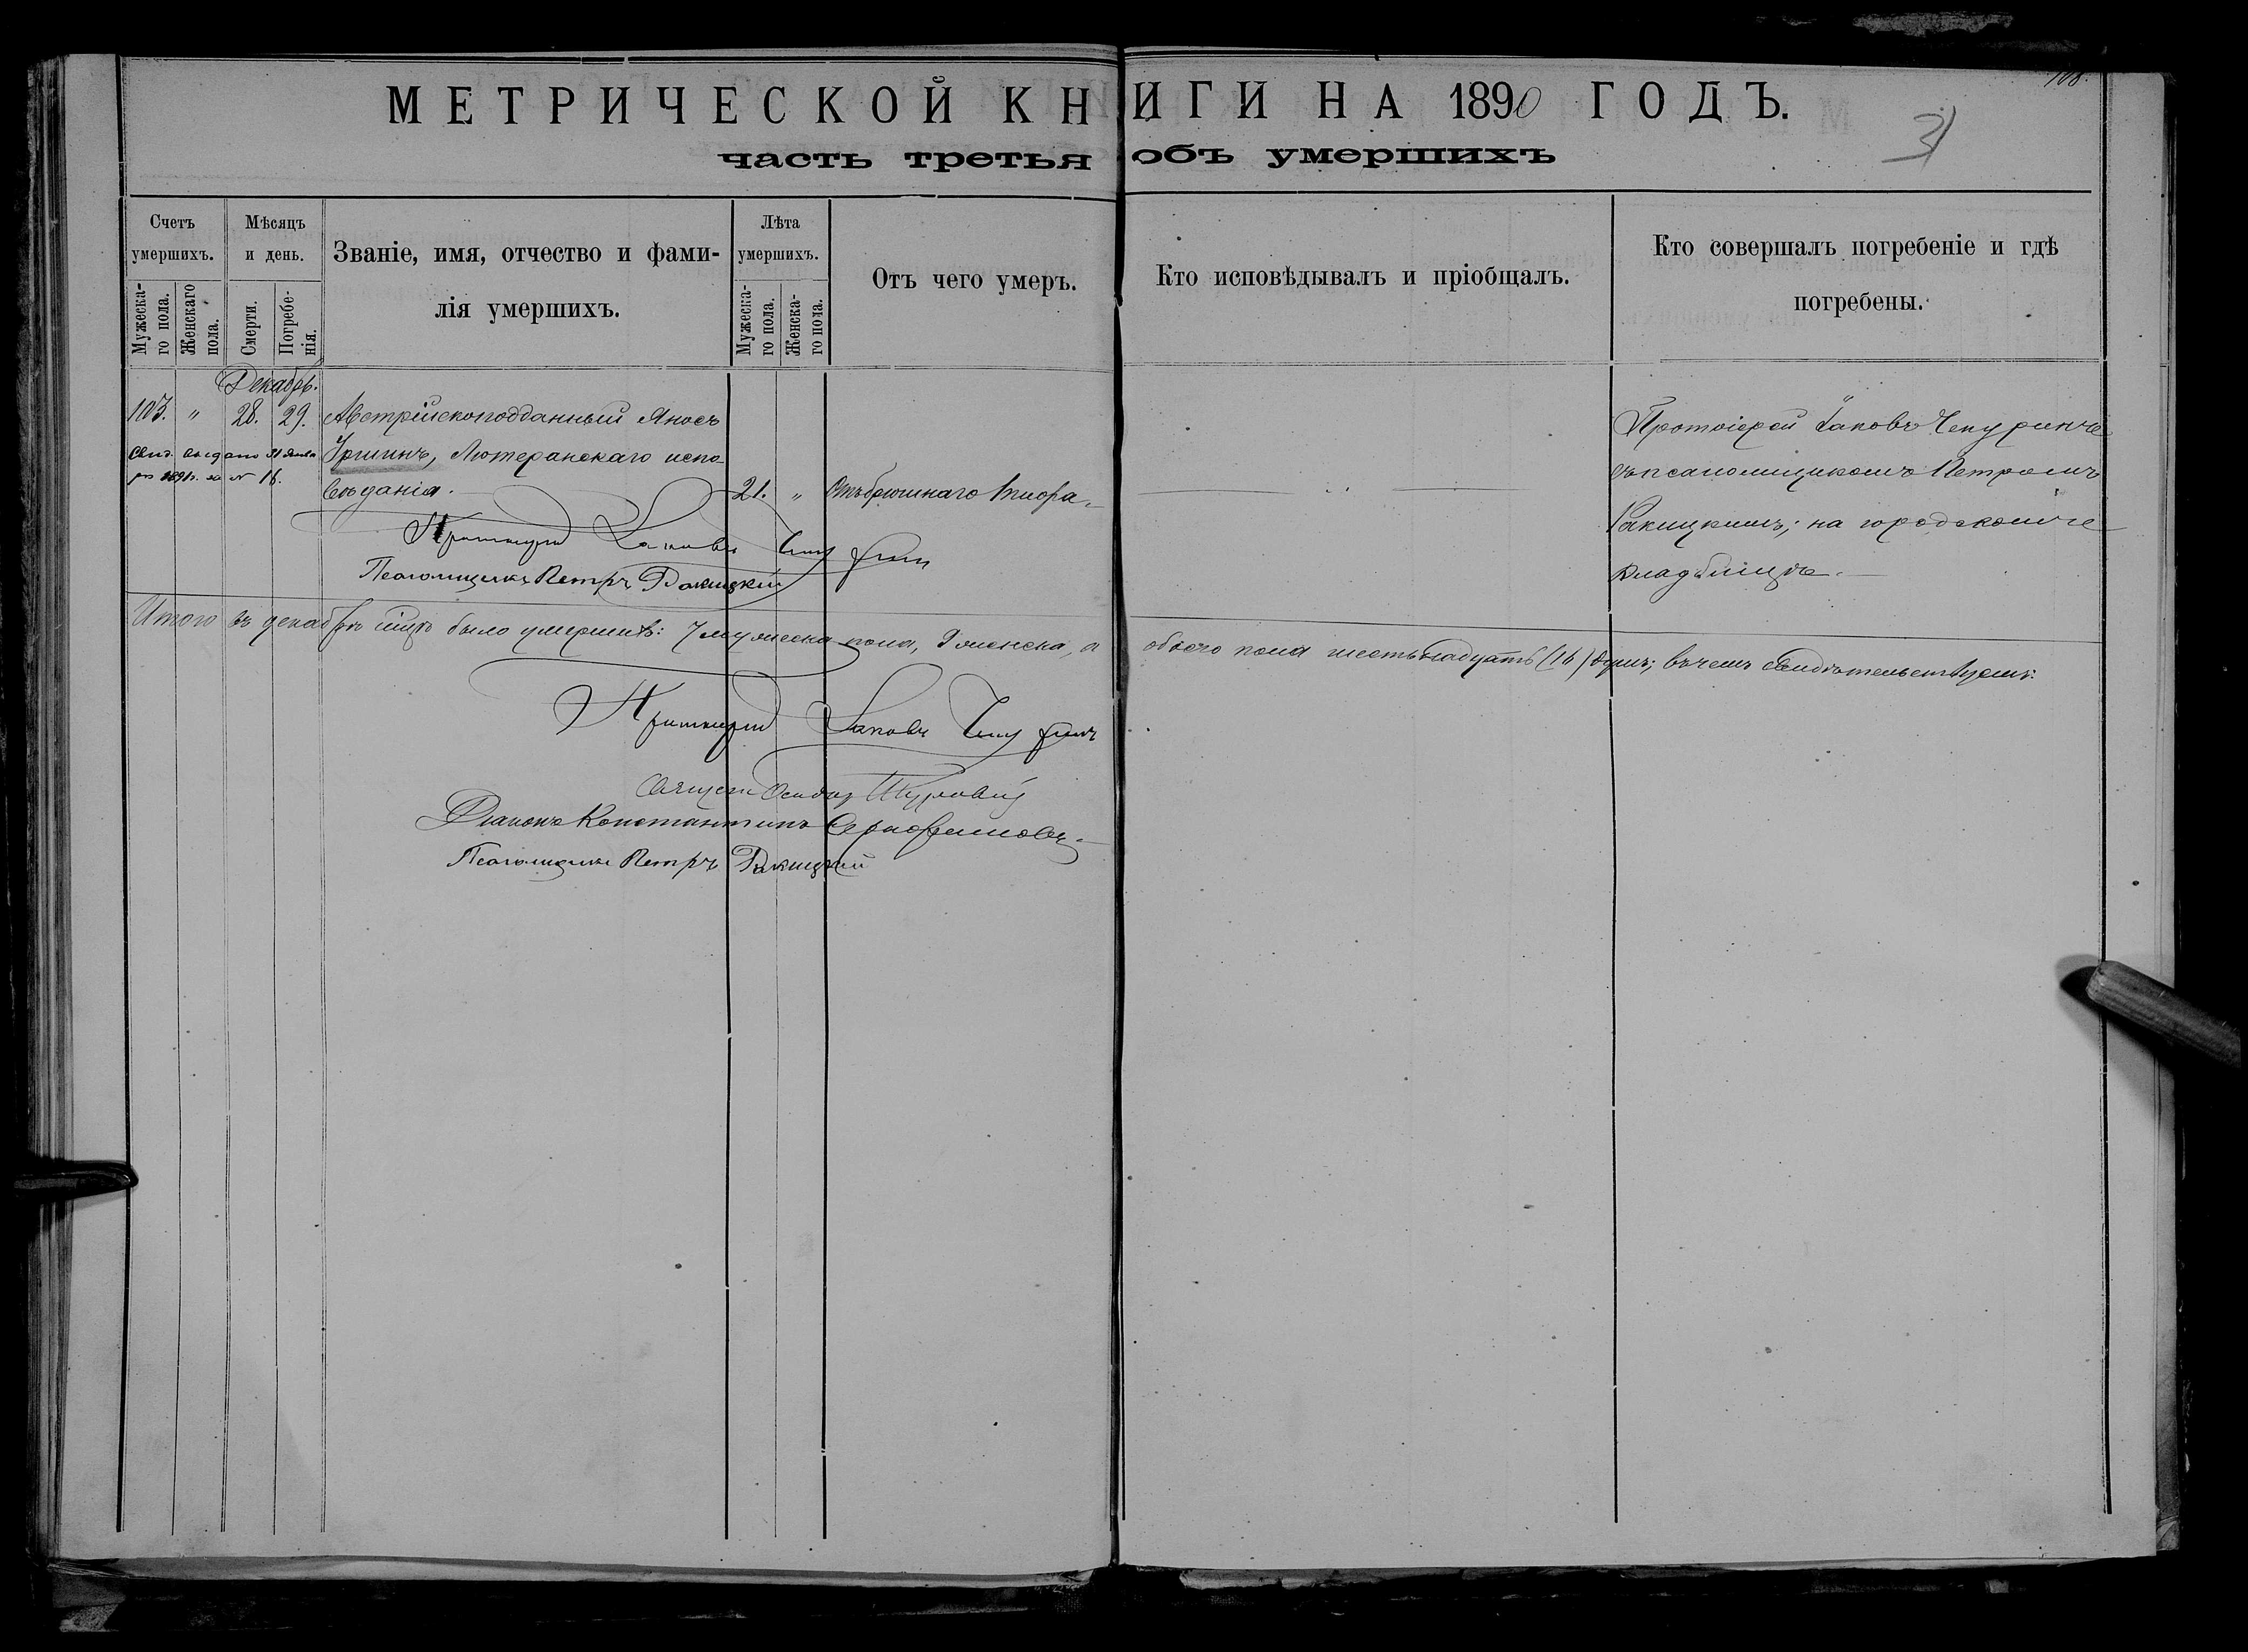 108.
МЕТРИЧЕСКОЙ КНИГИ НА 1890 ГОДЪ.
31
часть третья объ умершихъ
Счетъ умершихъ.
Мужеска-го пола.
Женскаго пола.
Мѣсяцъ и день.
Смерти.
Погребе-нія.
Званіе, имя, отчество и фами-
лія умершихъ.
Лѣта умершихъ.
Мужеска-го пола.
Женска-го пола.
Отъ чего умеръ.
Кто исповѣдывалъ и пріобщалъ.
Кто совершалъ погребеніе и гдѣ
погребены.
Декабрь.
103. " 28. 29. Австрійскоподданный Яносъ
Свид. выдано 31 Янва
ря 1891 г. за № 16.
Лютеранскаго испо
вѣданія.
21. " Отъ брюшнаго тифа.
Протоіерей Іаковъ Чепуринъ
съ псаломщикомъ Петромъ
Ракицкимъ; на городскомъ
кладбищѣ.
Протоіерей Іаковъ Чепурин
Псаломщикъ Петръ Ракицкій
Итого въ декабрѣ мцѣ было умершихъ: 7 мужеска пола, 9 женска, а обоего пола шестьнадцать (16) душъ; въ чемъ свидѣтельствуемъ:
Протоіерей Іаковъ Чепуринъ
Священ
Діаконъ Константинъ
Псаломщикъ Петръ Ракицкій